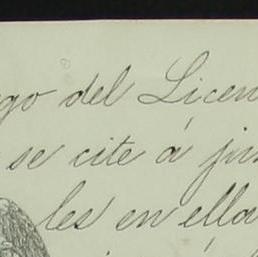 go del Licen
se cite á jun
les en ella